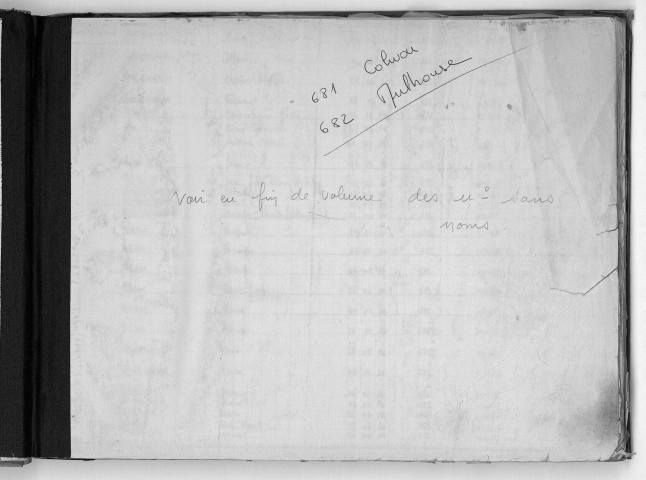 681 Colmar
682 Mulhouse
Voir en fin de volume des nº sans
noms.